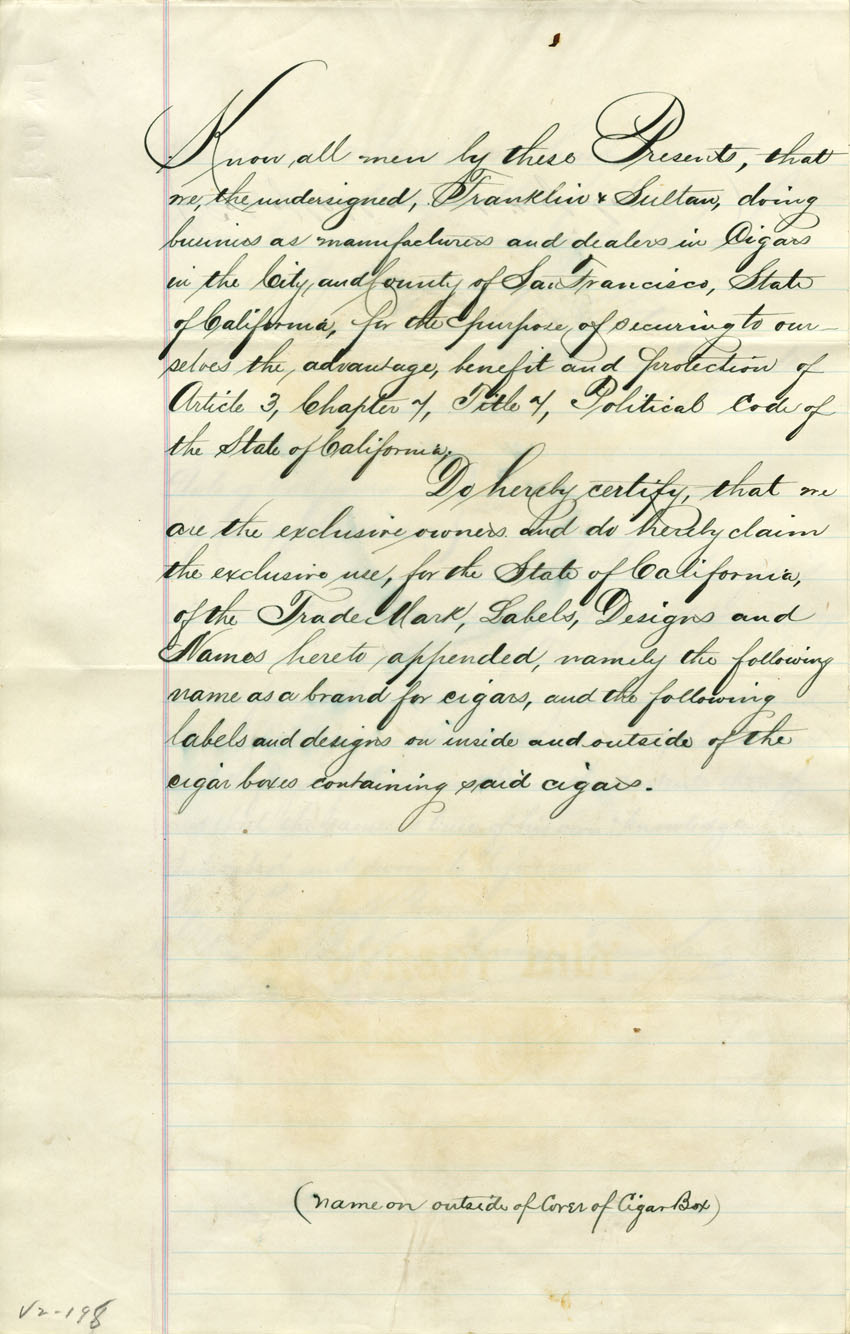 Know all men by these Presents, that
we, the undersigned, Franklin & Sultan, doing
business as manufacturers and dealers in Cigars
in the City, and County of San Francisco, State
of California, for the purpose, of securing to our-
selves the, advantage, benefit and protection of
Article 3, Chapter 7, Title 7, Political Code of
the State of California,
Do hereby certify, that we
are the exclusive owners and do hereby claim
the exclusive use, for the State of California,
of the Trade Mark, Labels, Designs and
Names hereto appended, namely the following
name as a brand for cigars, and the following
labels and designs on inside and outside of the
cigar boxes containing said cigars.
(name on outside of Cover of Cigar Box)
V2-198